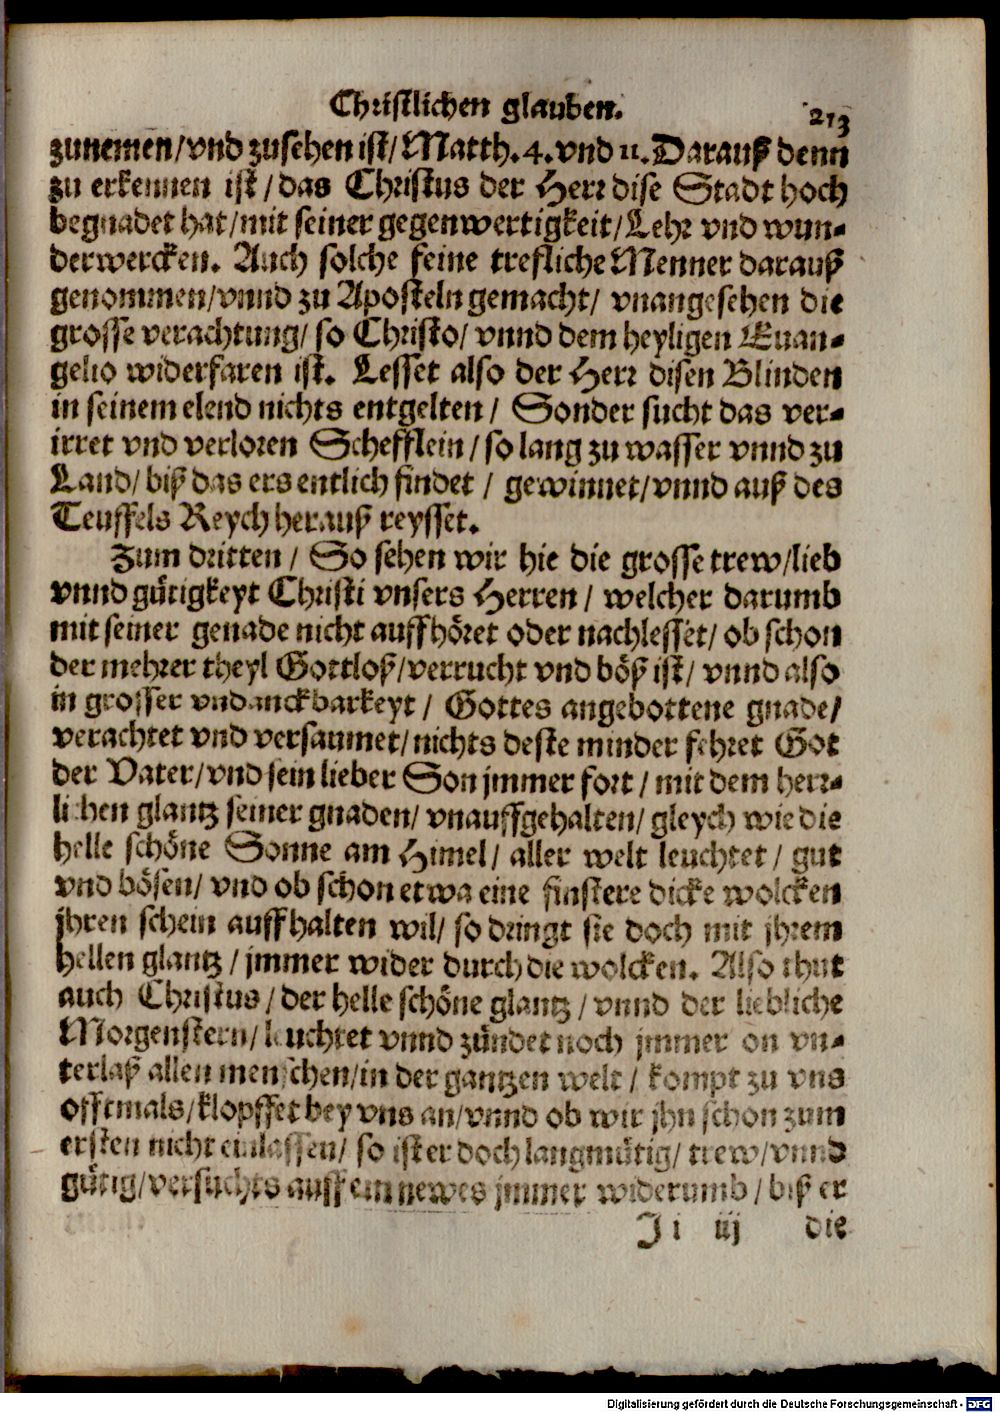 Christlichen glauben. 213
zunemen/vnd zusehen ist/Matth.4.vnd 11.Darauß denn
zu erkennen ist/das Christus der Herr dise Stadt hoch
begnadet hat/mit seiner gegenwertigkeit/Lehr vnd wun-
derwercken. Auch solche feine trefliche Menner darauß
genommen/vnnd zu Aposteln gemacht/ vnangesehen die
grosse verachtung/ so Christo/ vnnd dem heyligen Euan-
gelio widerfaren ist. Lesset also der Herr disen Blinden
in seinem elend nichts entgelten/ Sonder sucht das ver-
irret vnd verloren Schefflein/so lang zu wasser vnnd zu
Land/ biß das ers entlich findet/ gewinnet/vnnd auß des
Teuffels Reych herauß reysset.
Zum dritten/ So sehen wir hie die grosse trew/lieb
vnnd gütigkeyt Christi vnsers Herren/ welcher darumb
mit seiner genade nicht auffhöret oder nachlesset/ ob schon
der mehrer theyl Gottloß/verrucht vnd böß ist/ vnnd also
in grosser vndanckbarkeyt/ Gottes angebottene gnade/
verachtet vnd versaumet/nichts deste minder fehret Got
der Vater/vnd sein lieber Son jmmer fort/mit dem herr-
lichen glantz seiner gnaden/ vnauffgehalten/ gleych wie die
helle schöne Sonne am Himel/ aller welt leuchtet/ gut
vnd bösen/ vnd ob schon etwa eine finstere dicke wolcken
jhren schein auffhalten wil/ so dringt sie doch mit jhrem
hellen glantz/jmmer wider durch die wolcken. Also thut
auch Christus/der helle schöne glantz/vnnd der liebliche
Morgenstern/leuchtet vnnd zündet noch jmmer on vn-
terlaß allen menschen/in der gantzen welt/ kompt zu vns
offtmals/klopffet bey vns an/vnnd ob wir jhn schon zum
ersten nicht einlassen/ so ist er doch langmütig/ trew/vnnd
gütig/versuchts auff ein newes jmmer widerumb/ biß er
Ji iij die
Digitalisierung gefördert durch die Deutsche Forschungsgemeinschaft - DFG